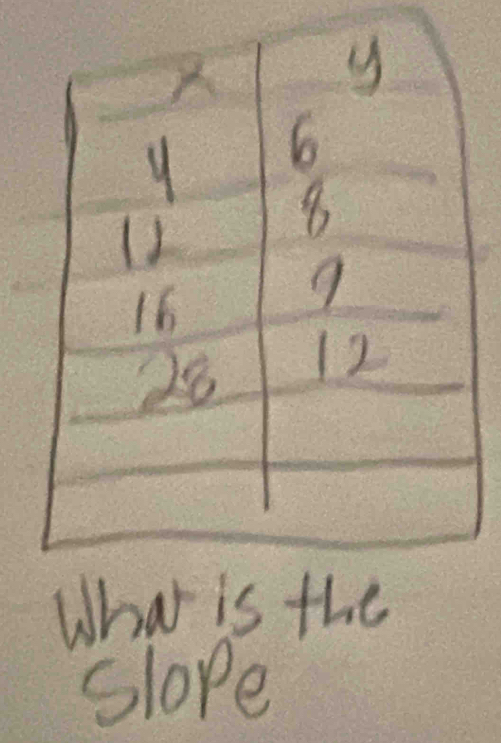 x y
4 6
12 8
16 9
28 12
What is the
Slope